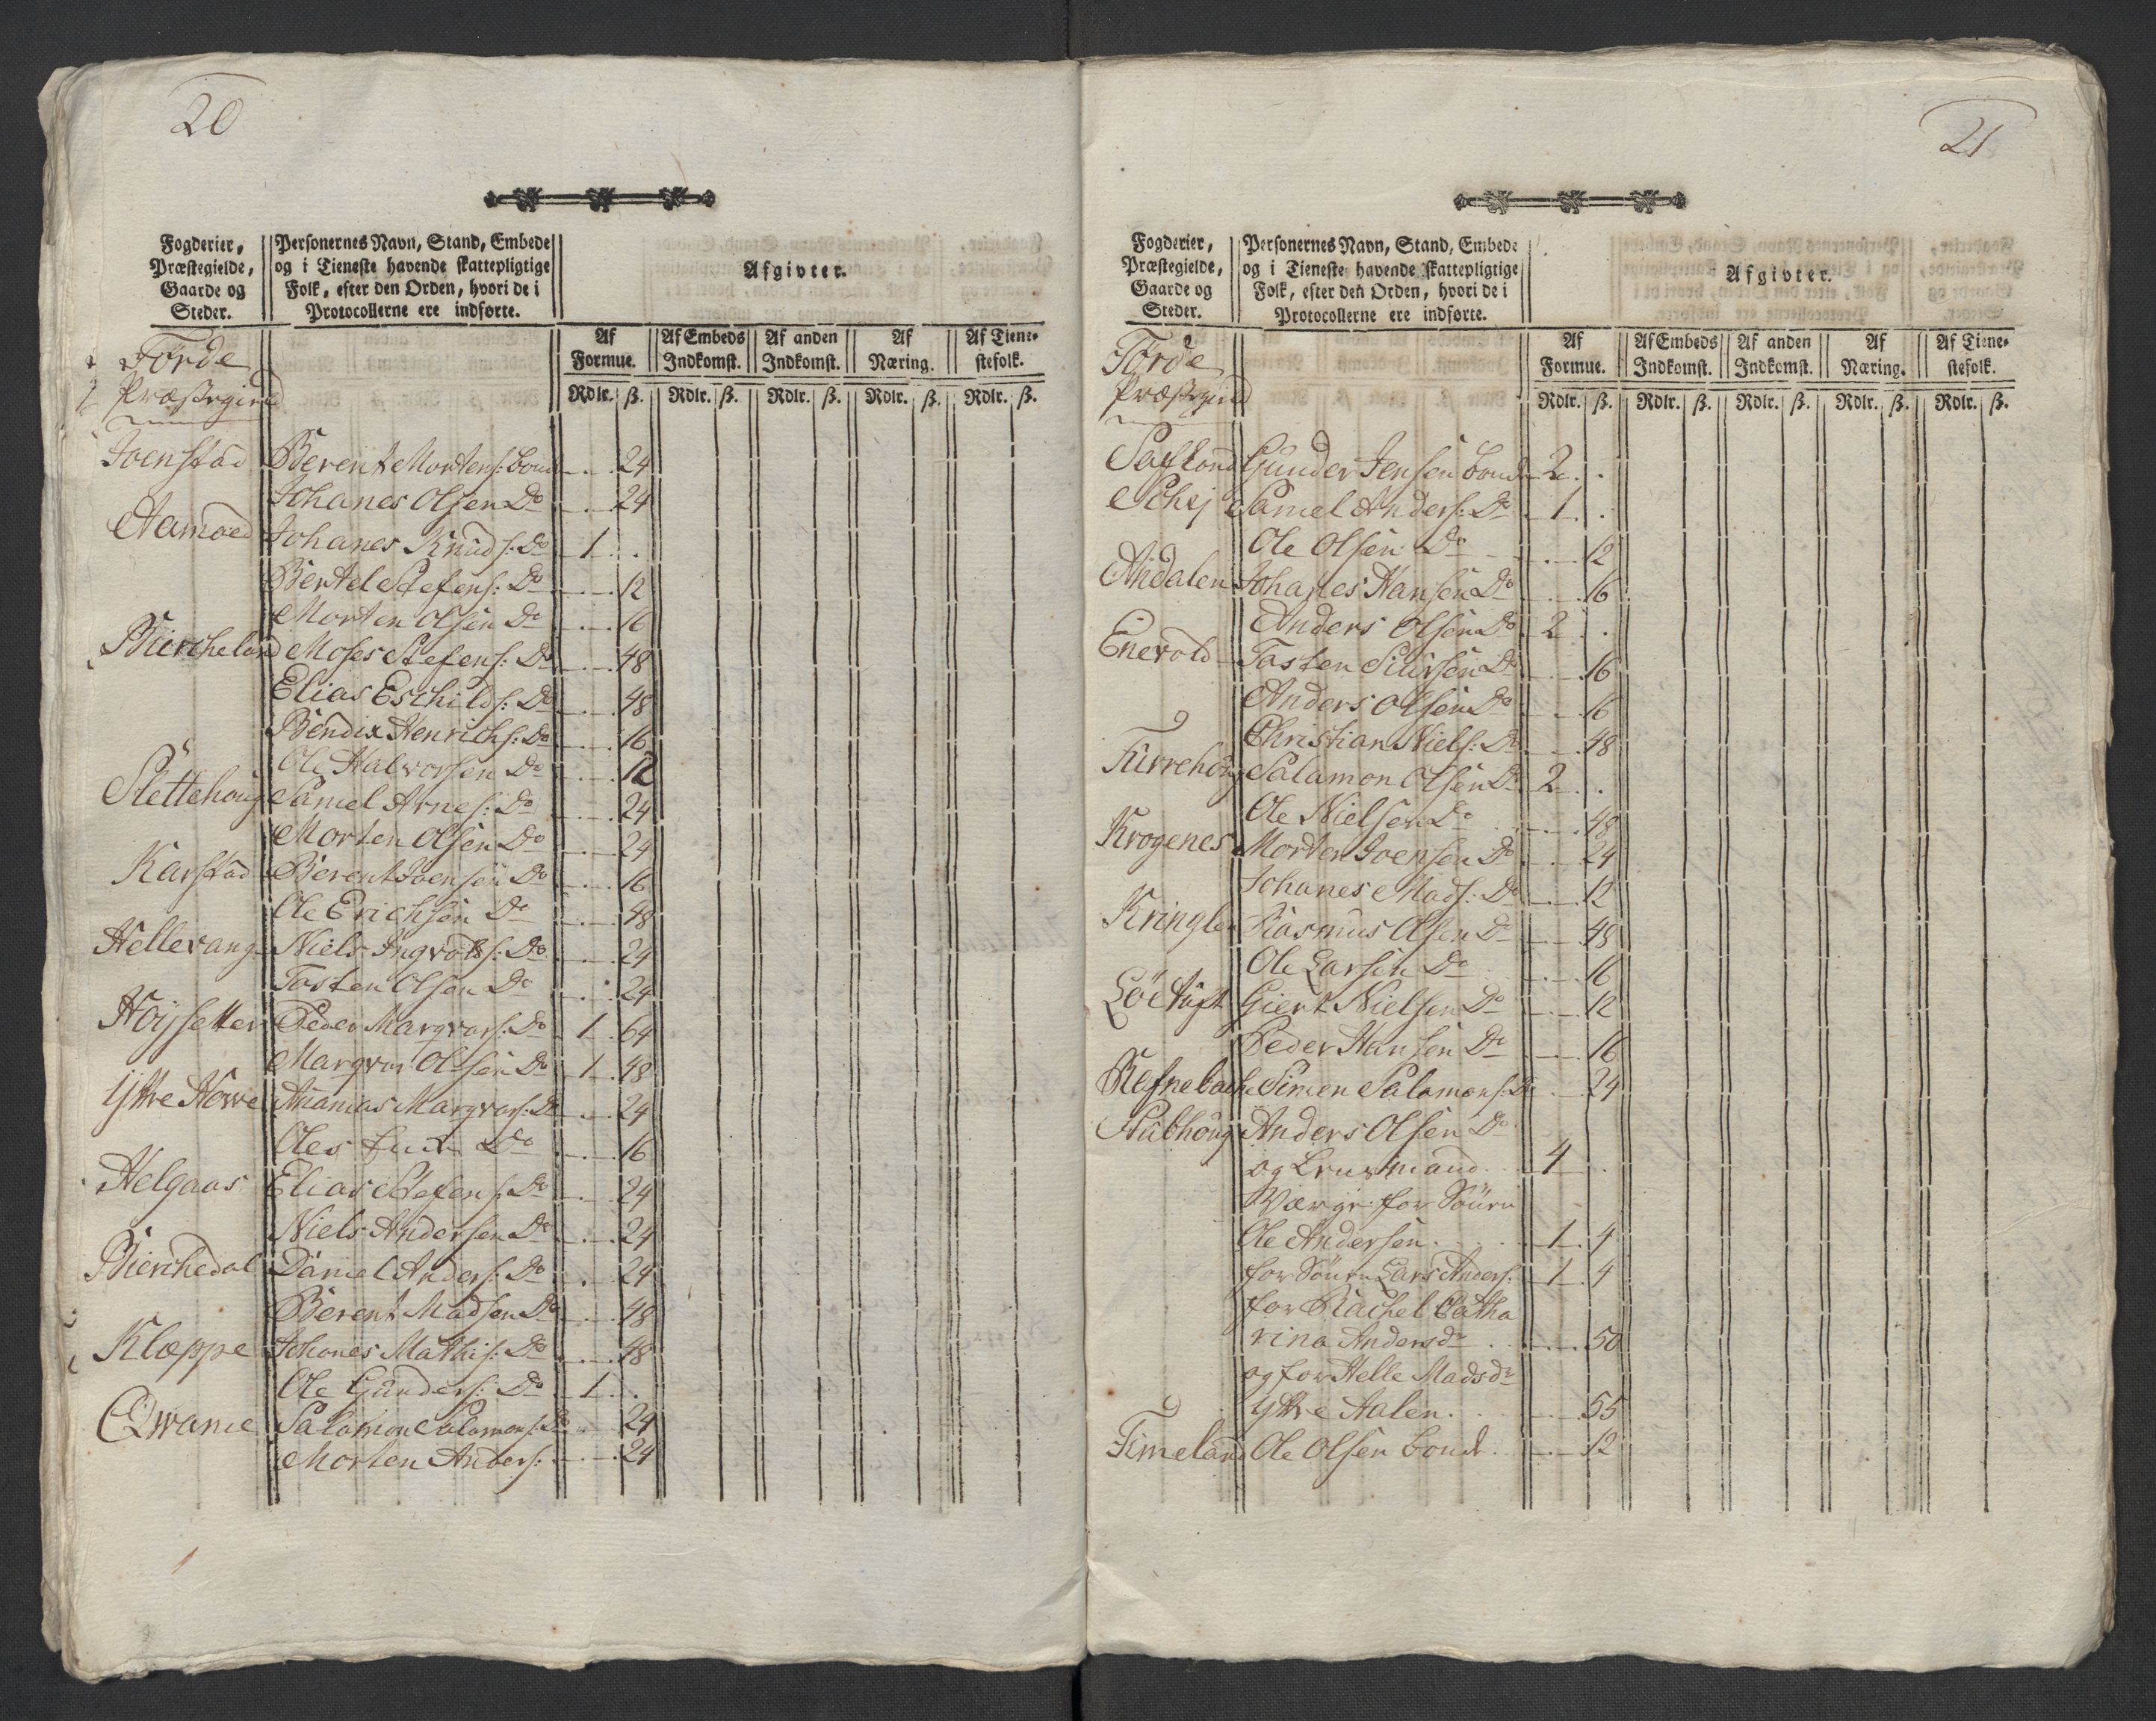 20
Fogderier,
Præstegielde,
Gaarde og
Steder.
Personernes Navn, Stand, Embede
og i Tieneste havende skattepligtige
Folk, efter den Orden, hvori de i
Protocollerne ere indførte.
Afgivter.
Af Formue. Af Embeds Indkomst. Af anden Indkomst. Af Næring. Af Tienestefolk.
Rdlr. ß. Rdlr. ß. Rdlr. ß. Rdlr. ß. Rdlr. ß.
Førde
Præstegield
Joenstad Berent Mortens: bonde 24
Johanes Olsen Do 24
Aamoed Johanes Knuds: Do 1 .
Bertel Stefens: Do 12
Morten Olsen Do 16
Biercheland Moses Stefens: Do 48
Elias Eschilds: Do 48
Bendix Henrichs: Do 16
Ole Halvorsen Do 12
Slettehoug Samel Arnes: Do 24
Morten Olsen Do 24
Karstad Berent Joensen Do 16
Ole Erichsen Do 48
Hellevang Niels Ingvolds: Do 24
Tosten Olsen Do 24
Høysetter Peder Marqvars: Do 1 64
Marqvar Olsen Do 1 48
Yttre Howe Ananias Marqvars: Do 24
Ole Do 16
Helgaas Elias Stefens: Do 24
Niels Andersen Do 24
Bierchedal Daniel Anders: Do 24
Berent Madsen Do 48
Kloppe Johanes Mathis: Do 48
Ole Gunders: Do 1 .
Qwame Salamon Salamons: Do 24
Morten Anders: 24
21
Fogderier,
Præstegielde,
Gaarde og
Steder.
Personernes Navn, Stand, Embede
og i Tieneste havende skattepligtige
Folk, efter den Orden, hvori de i
Protocollerne ere indførte.
Afgivter.
Af Formue. Af Embeds Indkomst. Af anden Indkomst. Af Næring. Af Tienestefolk.
Rdlr. ß. Rdlr. ß. Rdlr. ß. Rdlr. ß. Rdlr. ß.
Førde
Præstegield
Gunder Jensen bonde 2 .
Schej Samel Anders: Do 1 .
Ole Olsen Do 12
Andalen Johanes Hansen Do 16
Anders Olsen Do 2 .
Enevold Tosten Siursen Do 16
Anders Olsen Do 16
Christian Niels: Do 48
Furrehoug Salamon Olsen Do 2 .
Ole Nielsen Do 48
Krogenes Morten Joensen Do 24
Johanes Mads: Do 12
Kringlen Rasmus Olsen Do 48
Ole Larsen Do 16
Løetuft Giert Nielsen Do 12
Peder Hansen Do 16
Refnebache Simen Salamons: Do 24
Stubhoug Anders Olsen Do
og Lensmand 4 .
Værge for Sønen
Ole Andersen 1 4
for Sønen Lars Anders: 1 4
for Rachel Catha
rina Andersdr 50
og for Helle Madsdr
Yttre Aalen 55
Timeland Ole Olsen bonde 12